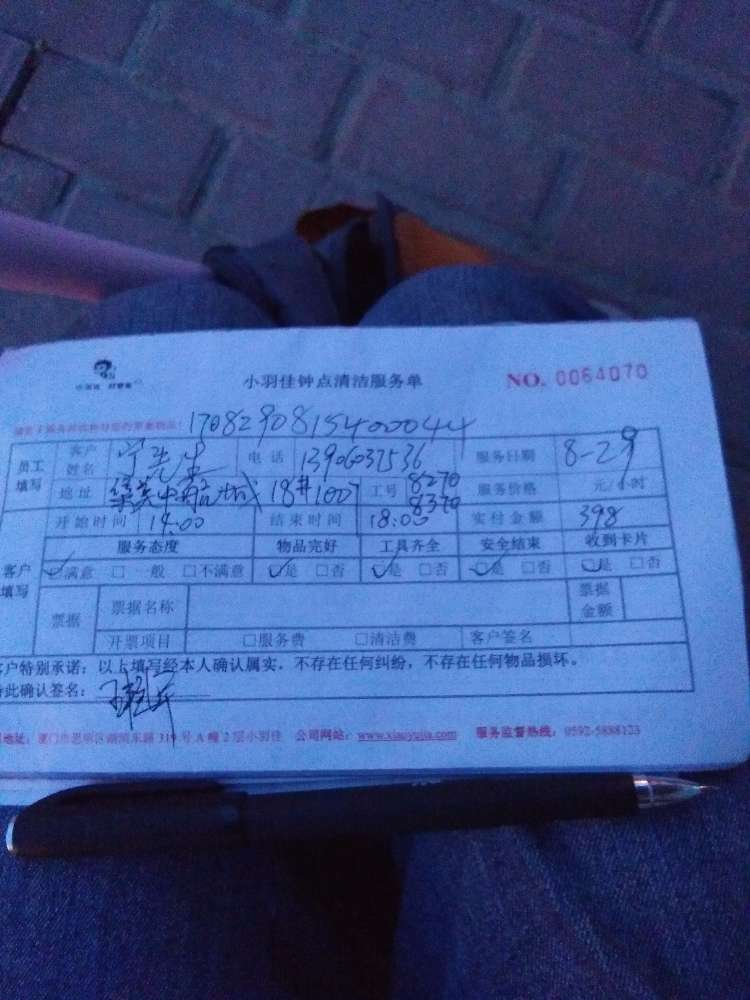 小羽佳钟点清洁服务单 NO. 0064070
1708290815400044
员工填写 客户姓名 宁先生 电话 13906037536 服务日期 8-29
地址 集美中航城18#1007 工号 8270 8370 服务价格 元/小时
开始时间 14:00 结束时间 18:00 实付金额 398
客户填写 服务态度 物品完好 工具齐全 安全结束 收到卡片
☑满意 □一般 □不满意 ☑是 □否 ☑是 □否 ☑是 □否 ☑是 □否
票据 票据名称 票据金额
开票项目 □服务费 □清洁费 客户签名
客户特别承诺:以上填写经本人确认属实,不存在任何纠纷,不存在任何物品损坏。
特此确认签名:
地址:厦门市思明区湖滨东路319号A幢2层小羽佳 公司网站:www.xiaoyujia.com 服务监督热线:0592-5888123